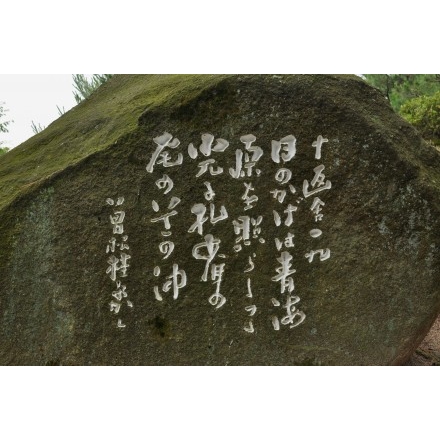 十返舎一九
日のかげは青海
原を照らしつつ
光る孔雀の
尾の道の沖
曽根桂